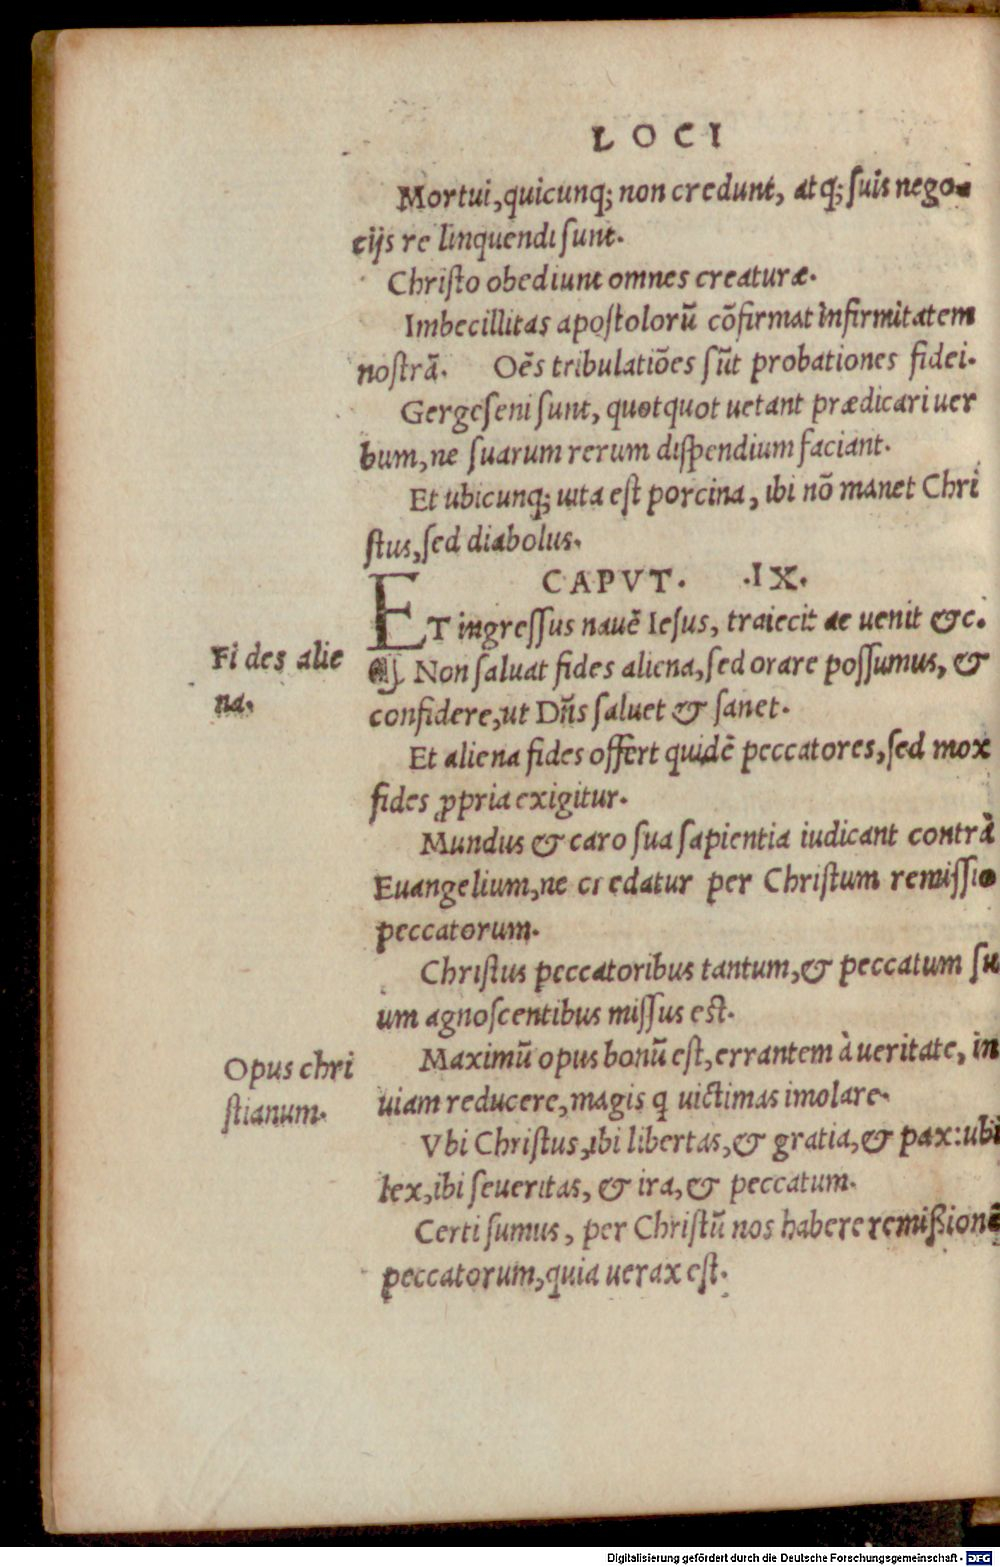 LOCI
Mortui, quicunq; non credunt, atq; suis nego-
cijs re linquendi sunt.
Christo obediunt omnes creaturæ.
Imbecillitas apostolorũ cõfirmat infirmitatem
nostrã. Oẽs tribulatiões sũt probationes fidei.
Gergeseni sunt, quotquot uetant prædicari uer
bum, ne suarum rerum dispendium faciant.
Et ubicunq; uita est porcina, ibi nõ manet Chri
stus, sed diabolus.
CAPVT. .IX.
ET ingressus nauẽ Iesus, traiecit ac uenit &c.
Fi des alie
na.
¶ Non saluat fides aliena, sed orare possumus, &
confidere, ut Dñs saluet & sanet.
Et aliena fides offert quidẽ peccatores, sed mox
fides ꝓpria exigitur.
Mundus & caro sua sapientia iudicant contrà
Euangelium, ne credatur per Christum remissio
peccatorum.
Christus peccatoribus tantum, & peccatum su
um agnoscentibus missus est.
Opus chri
stianum.
Maximũ opus bonũ est, errantem à ueritate, in
uiam reducere, magis q uictimas imolare.
Vbi Christus, ibi libertas, & gratia, & pax: ubi
lex, ibi seueritas, & ira, & peccatum.
Certi sumus, per Christũ nos habere remißionẽ
peccatorum, quia uerax est.
Digitalisierung gefördert durch die Deutsche Forschungsgemeinschaft - DFG